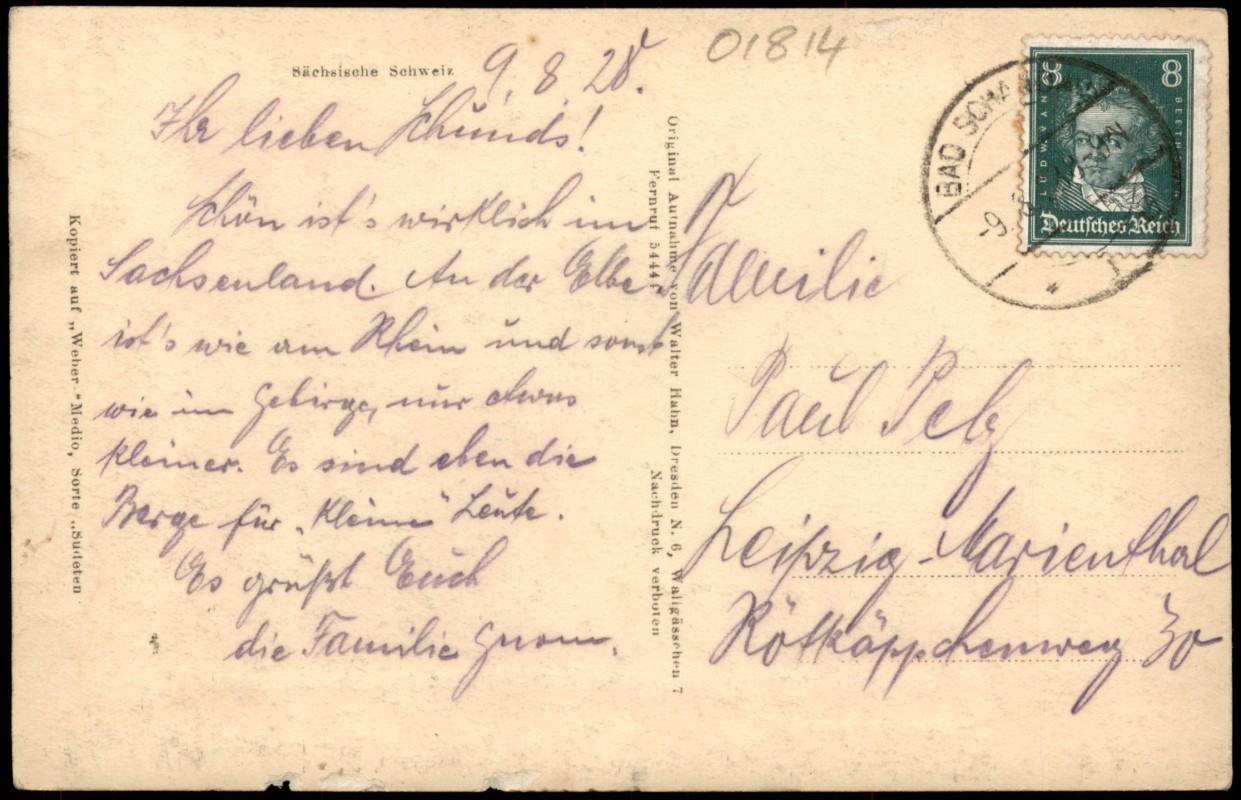 01814
Sächsische Schweiz
9. 8. 28.
Ihr lieben Schunds!
Schön ist's wirklich im
Sachsenland. An der Elbe
ist's wie am Rhein und sonst
wie im Gebirge, nur etwas
kleiner. Es sind eben die
Berge für "kleine" Leute.
Es grüßt Euch
die Familie Gnom.
Kopiert auf „Weber-“Medio, Sorte „Sudeten
Original Aufnahme von Walter Hahn, Dresden N. 6, Wallgässchen 7
Fernruf 54441
Nachdruck verboten
Familie
Paul Pelz
Leipzig-Marienthal
Rotkäppchenweg 30
8 8
LUDW. VAN
BEETH
Deutsches Reich
BAD SCHA